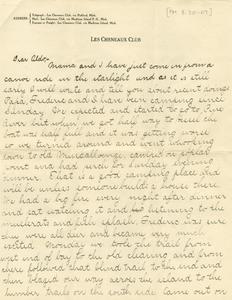 [PM 8-20-07]
ADDRESS
Telegraph: Les Cheneaux Club, via Mackinac, Mich.
Mail: Les Cheneaux Club, via Mackinac Island P. O., Mich.
Express or Freight: Les Cheneaux Club, via Mackinac Island, Mich.
LES CHENEAUX CLUB
Dear Aldo:-
Mama and I have just come in from a
canoe ride in the starlight and as it is still
early I will write and tell you about recent doings.
Papa, Frederic and I have been camping since
Sunday. We expected and started to go to
over but when we got half way to the
boat was half full and it was getting worse
so we turned around and went down
to old Muscallonge, camped on
point and had lunch for Sunday evening
dinner. That is a good camping place and
will be unless someone builds a house there.
We had a big fire every night after dinner
and sat watching it and listening to the
muskrats and fish splash. Frederic is sure
they were all deer and became very much
excited. Monday we took the trail from
west end of bay to the old clearing and from
there followed that blind trail to the end and
then blazed our way across the island to the
lumber trails on the south side. Came out on